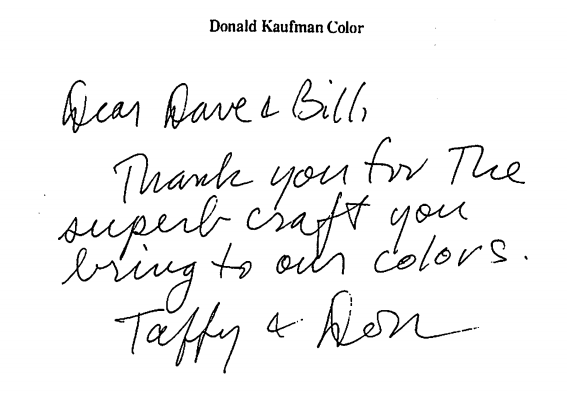 Donald Kaufman Color
Dear Dave & Bill,
Thank you for The
superb craft you
bring to our colors.
Taffy & Don